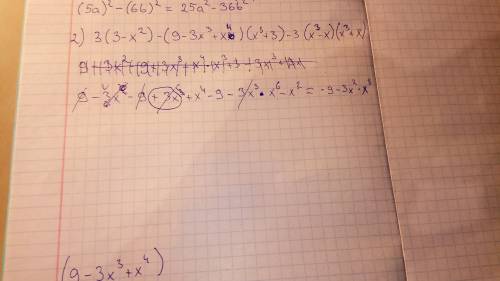 (5a)² - (6b)² = 25a² - 36b²
2) 3(3-x²)-(9-3x³+x⁴)(x³+3)-3(x³-x)(x³+x)
9 - 3x² - 9 + 3x³ + x⁴ - 9 - 3x³ · x⁶ - x² = -9-3x²·x³
(9-3x³+x⁴)